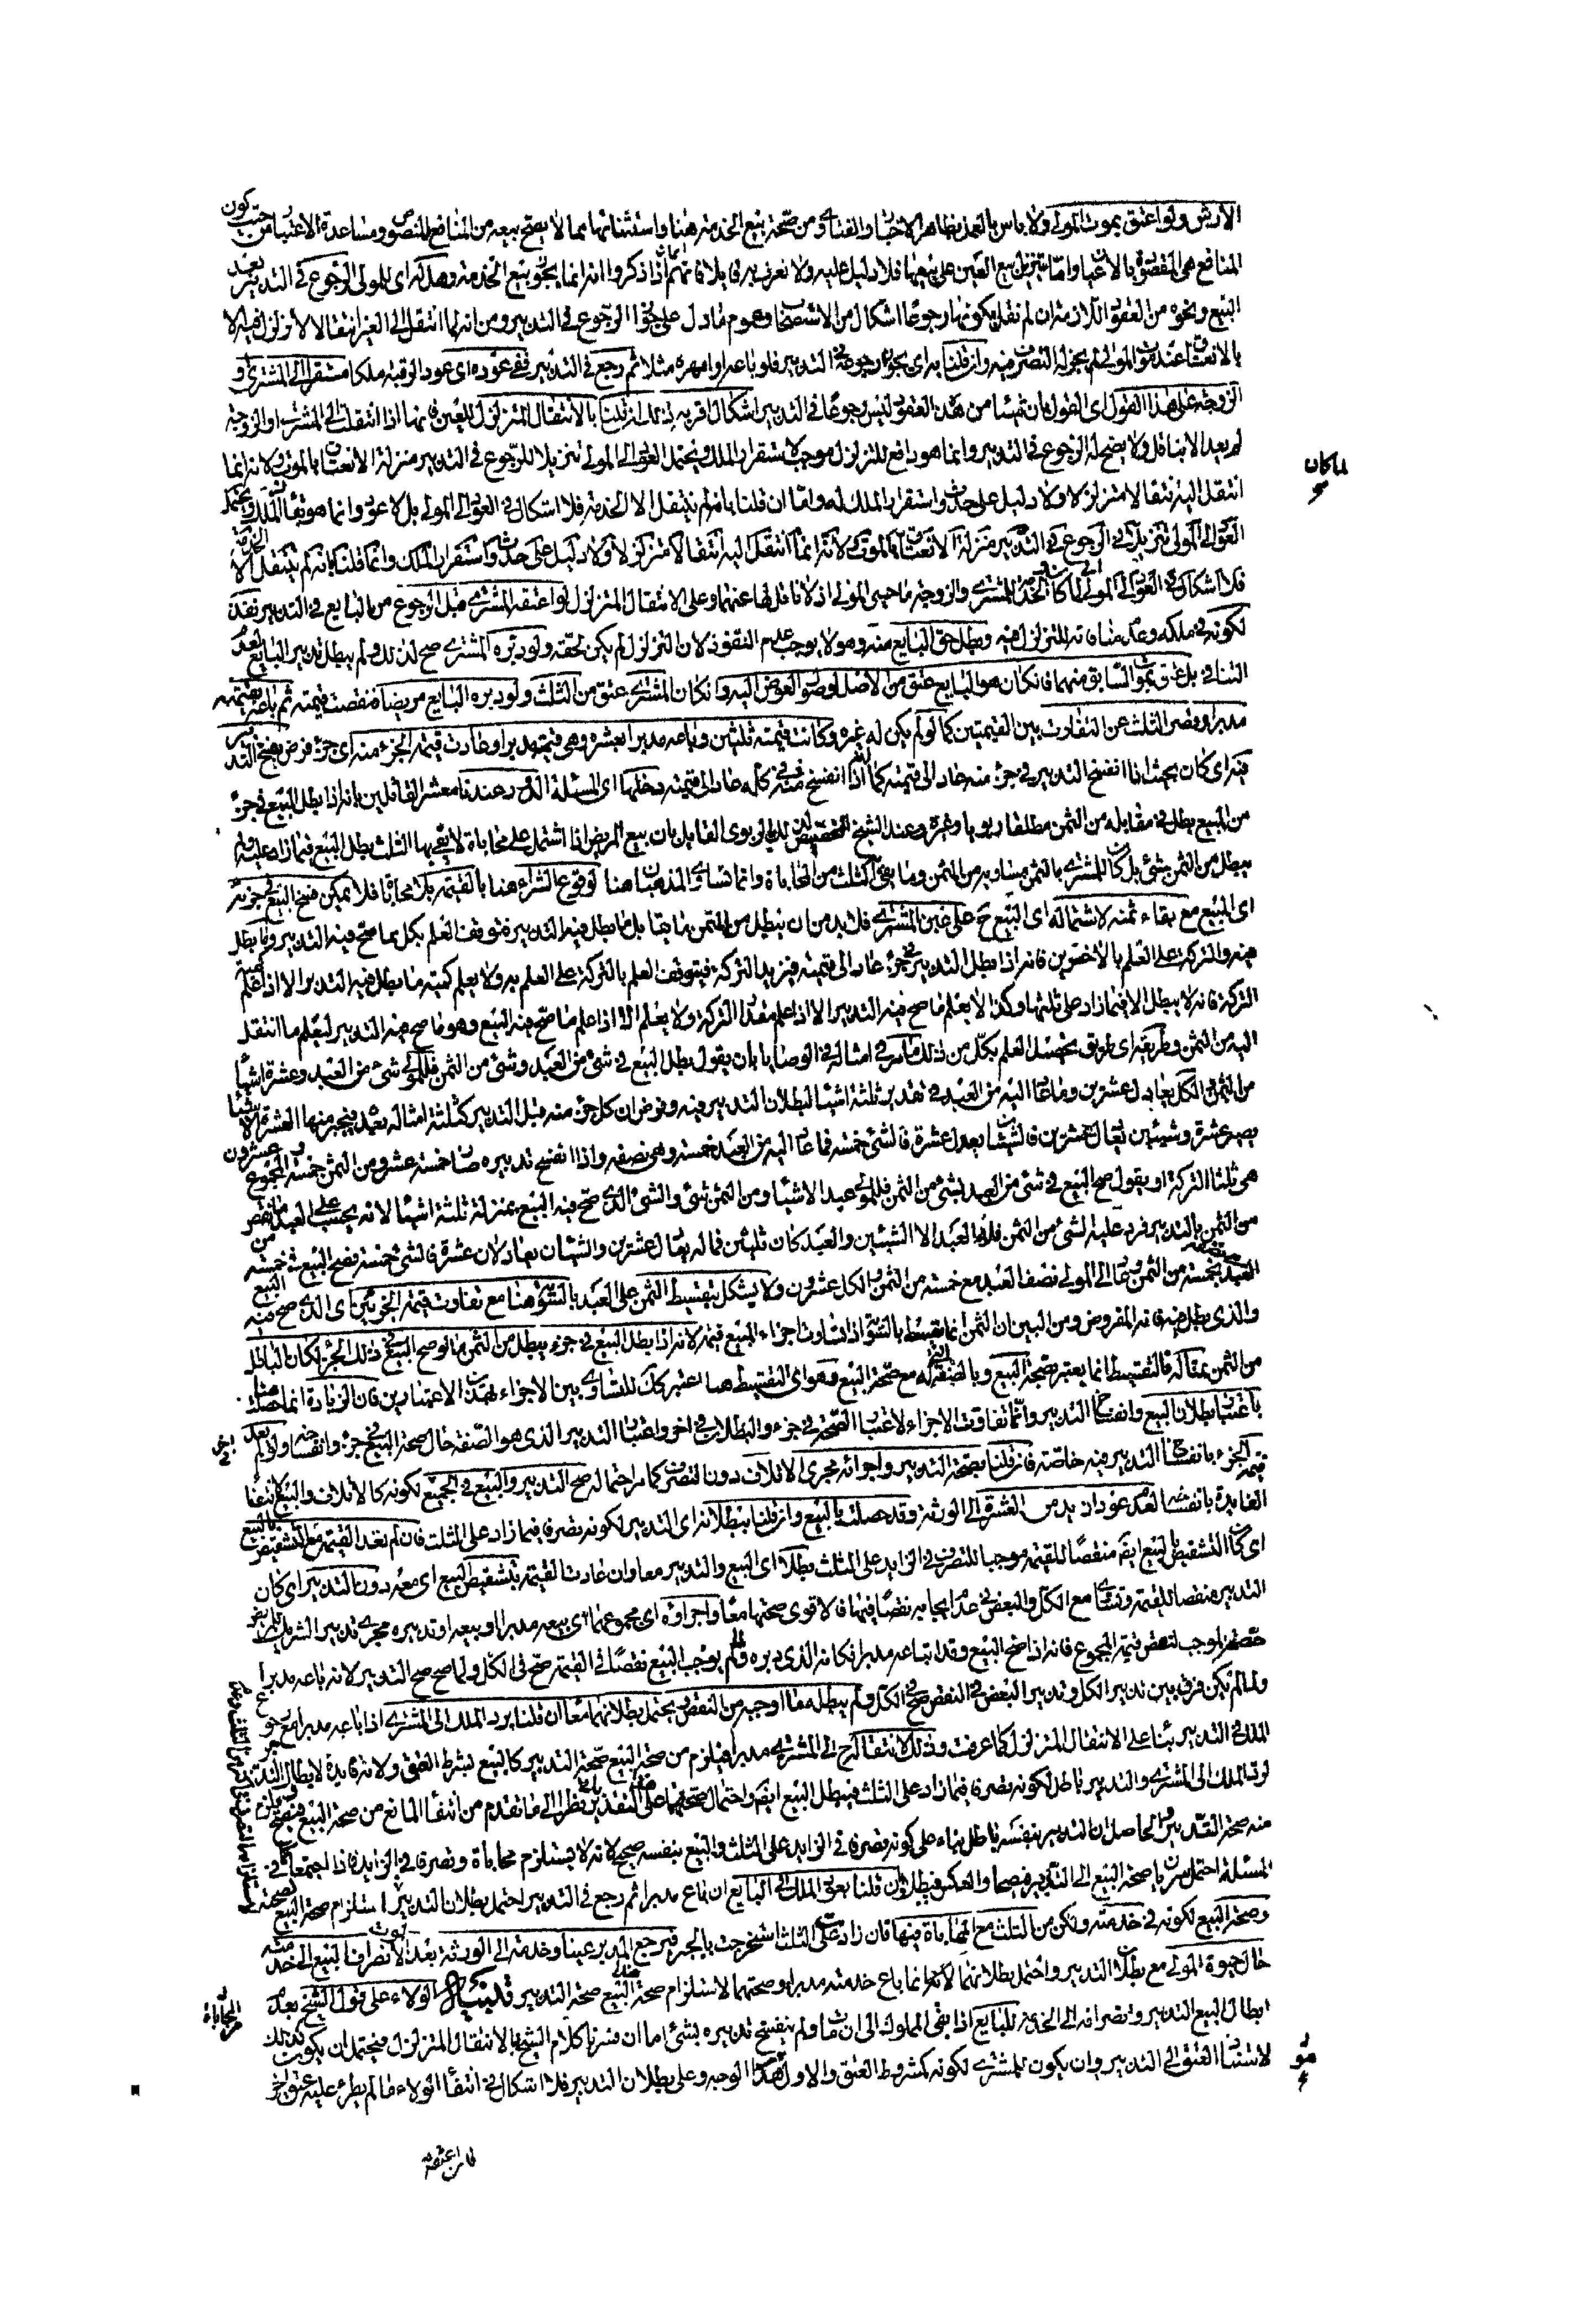 الارش ولو اعتق بموت المولى ولا باس بالعمل بظاهر الاخبار والفتاوى ومن صحة بيع الخدمة هنا واستثنائها مما لا يصح بيعه من المنافع للنصوص ومساعدة الاعتبار من حيث كون
المنافع هى المقصودة بالاعيان واما تنزيل بيع العين على بيعها فلا دليل عليه ولا نعرف به قايلا فانهم انما ذكروا انه انما يجوز بيع الخدمة وهل له اى للمولى الرجوع فى التدبير بعد
البيع ونحوه من العقود اللازمة ان لم نقل بكونها رجوعا اشكال من الاستصحاب وعموم ما دل على جواز الرجوع فى التدبير ومن انه لما انتقل الى الغير انتقالا لا تزلزل فيه الا
بالانعتاق عند موت المولى لم يجز له التصرف فيه وان قلنا به اى بجواز رجوعه فى التدبير فلو باعه او امهره مثلا ثم رجع فى التدبير ففى عوده اى عود الرقبة ملكا مستقرا الى المشترى و
الزوجة على هذا القول اى القول بان شيئا من هذه العقود ليس رجوعا فى التدبير اشكال اقربه ذلك ان قلنا بالانتقال المتزلزل للعين فانها اذا انتقلت الى المشترى او الزوجة
لم يعد الا بناقل ولا يصح له الرجوع فى التدبير وانما هو دافع للتزلزل موجب لاستقرار الملك ويحتمل العود الى المولى تنزيلا للرجوع فى التدبير منزلة الانعتاق بالموت ولانه انما
انتقل اليه انتقالا متزلزلا ولا دليل على حدوث واستقرار الملك له واما ان قلنا بانه لم ينتقل الا الخدمة فلا اشكال فى العود الى المولى بل لا عود وانما هو بقاء الملك ويحتمل
العود الى المولى تنزيلا فى الرجوع فى التدبير منزلة الانعتاق بالموت ولانه انما انتقل اليه انتقالا متزلزلا ولا دليل على حدوث واستقرار الملك وانما قلنا بانه لم ينتقل الا الخدمة
فلا اشكال فى العود الى المولى لما كان الخدمة للمشترى والزوجة ما حيى المولى اذ لا ناقل لها عنهما وعلى الانتقال المتزلزل لو اعتقه المشترى قبل الرجوع من البايع فى التدبير نفذ
لكونه فى ملكه وعدم منافاته للتزلزل فيه وبطل حق البايع منه وهو لا يوجب عدم النفوذ لان التزلزل لم يكن لحقه ولو دبره المشترى صح لذلك ولم يبطل تدبير البايع لعدم
التنافى بل عتق بموت السابق منهما فان كان هو البايع عتق من الاصل لوصول العوض اليه وان كان المشترى عتق من الثلث ولو دبره البايع مريضا فنقصت قيمته ثم باعه بقيمته
مدبرا وقصر الثلث عن التفاوت بين القيمتين كما لو لم يكن له غيره وكانت قيمته ثلثين وباعه مدبرا بعشرة وهى قيمته مدبرا وعادت قيمة الجزء منه اى جزء فرض بفسخ التدبير
فيه اى كان بحيث اذا انفسخ التدبير فى جزء منه عاد الى قيمته كما انه اذا انفسخ فى كله عاد الى قيمته دخلها اى المسئلة الدور عندنا معشر القائلين بانه اذا بطل البيع فى جزء
من المبيع بطل فى مقابله من الثمن مطلقا ربويا وغيره وعند الشيخ المخصص لذلك بالربوى القايل بان بيع المريض اذا اشتمل على محاباة لا يفى بها الثلث بطل البيع فيما زاد عليه ولم
يبطل من الثمن بشئ بل كان للمشترى بالثمن ما يساويه من المثمن وما يفى الثلث من المحاباة وانما تساوى المذهبان هنا لوقوع الشراء هنا بالقيمة بلا محاباة فلا يمكن فسخ البيع فى جزئه
اى المبيع مع بقاء ثمنه لاشتماله اى البيع ح على غبن المشترى فلا بد من ان يبطل من الثمن ما يقابل ما بطل فيه التدبير فتوقف العلم بكل مما صح فيه التدبير وما بطل
فيه والتركة على العلم بالاخرين فانه اذا بطل التدبير فى جزء عاد الى قيمته فيزيد التركة فيتوقف العلم بالتركة على العلم به ولا يعلم كمية ما بطل فيه التدبير الا اذا علم كمية
التركة فانه لا يبطل الا فيما زاد على ثلثها وكذا لا يعلم ما صح فيه التدبير الا اذا علم مقدار التركة ولا يعلم الا اذا علم ما صح فيه البيع وهو ما صح فيه التدبير ليعلم ما انتقل
اليه من الثمن وطريقه اى طريق تحصيل العلم بكل من ذلك ما مر فى امثاله فى الوصايا بان يقول بطل البيع فى شئ من العبد وشئ من الثمن فللمولى شئ من العبد وعشرة الا شيئا
من الثمن والكل يعادل عشرين وما عاد اليه من العبد فى تقدير ثلثة اشياء لبطلان التدبير فيه وفرض ان كل جزء منه قبل التدبير كثلثة امثاله بعده فيجبر منها العشرة الا شيئا
يصير عشرة وشيئين تعادل عشرين فالشيئان يعدل عشرة فالشئ خمسة فما عاد اليه من العبد خمسة وهى نصفه واذا انفسخ تدبيره صار خمسة عشر ومن الثمن خمسة فالمجموع عشرون
هى ثلثا التركة او يقول صح البيع فى شئ من العبد بشئ من الثمن فللمولى عبد الا شيئا ومن الثمن شئ والشئ الذى صح فيه البيع بمنزلة ثلثة اشياء لانه يحتسب على العبد ما نقص
من الثمن بالتدبير فرد عليه الشئ من الثمن فله العبد الا الشيئين والعبد كان ثلثين فما له يعادل عشرين والشيئان يعادلان عشرة فالشئ خمسة فصح البيع فى خمسة من
العبد بخمسة من الثمن ويعود الى المولى نصف العبد مع خمسة من الثمن والكل عشرون ولا يشكل بتقسيط الثمن على العبد بالسوية هنا مع تفاوت قيمة الجزئين اى الذى صح فيه البيع
والذى بطل فيه فانه المفروض ومن البين ان الثمن انما يقسط بالسوية اذا تساوت اجزاء المبيع قيمة لانه اذا بطل البيع فى جزء يبطل من الثمن ما لو صح البيع فى ذلك الجزء لكان الباطل
من الثمن بمقابله فالتقسيط انما يعتبر بصحة البيع وبالصفة التى له مع صحة البيع وهو اى التقسيط هنا اعتبر كك للتساوى بين الاجزاء بهذين الاعتبارين فان الزيادة انما حصلت
باعتبار بطلان البيع وانفساخ التدبير وانما تفاوت الاجزاء لاعتبار الصحة فى جزء والبطلان فى اخر واعتبار التدبير الذى هو الصفة حال صحة البيع فى جزء وانفساخه فى اخر ولو لم يعد
قيمة الجزء بانفساخ التدبير فيه خاصة فان قلنا بصحة التدبير واجرائه مجرى الاتلاف دون التصرف كما مر احتماله صح التدبير والبيع فى الجميع لكونه كالاتلاف والبيع لانتفاء
الفايدة بانفساخه لعدم عود ازيد من العشرة الى الورثة وقد حصلت بالبيع وان قلنا ببطلانه اى التدبير لكونه تصرفا فيما زاد على الثلث فان لم يعد القيمة مع التشقيص بالبيع
اى كان التشقيص بالبيع ايضا منقصا للقيمة موجبا للتصرف فى الزايد على الثلث بطلا اى البيع والتدبير معا وان عادت القيمة بتشقيص البيع اى معه دون التدبير اى كان
التدبير منقصا للقيمة وتساوى مع الكل والبعض فى عدم ايجابه نقصا فيها فالاقوى صحتهما معا واجراؤه اى مجموعهما اى بيعه مدبرا او بيعه او تدبيره مجرى تدبير الشريك المريض
حصته الموجب لنقص قيمة المجموع فانه اذا صح البيع وقد ابتاعه مدبرا فكانه الذى دبره ولم يوجب البيع نقصا فى القيمة صح فى الكل ولما صح صح التدبير لانه باعه مدبرا
ولما لم يكن فرق بين تدبير الكل وتدبير البعض فى النقص صح فى الكل ولم يبطله ما اوجبه من النقص ويحتمل بطلانهما معا ان قلنا برد الملك الى المشترى اذا باعه مدبرا مع رجوع
المولى فى التدبير بناء على الانتقال المتزلزل كما عرفت وذلك لانتقاله ح الى المشترى مدبرا فيلزم من صحة البيع صحة التدبير كالبيع بشرط العتق ولانه لا فايدة لابطال التدبير
لرد الملك الى المشترى والتدبير باطل لكونه تصرفا فيما زاد على الثلث فيبطل البيع ايضا واحتمال صحتهما على التقديرين نظرا الى ما تقدم من انتفاء المانع من صحة البيع فيصح ويلزم
منه صحة التدبير والحاصل ان التدبير بنفسه باطل بناء على كونه تصرفا فى الزايد على الثلث والبيع بنفسه صحيح لانه لا يستلزم محاباة وتصرفا فى الزايد فاذا اجتمعا كما فى
المسئلة احتمل سريان صحة البيع الى التدبير فيصحا والعكس فيبطلا وان قلنا بعود الملك الى البايع ان باع مدبرا ثم رجع فى التدبير احتمل بطلان التدبير لا ستلزام صحة البيع لصحته
وصحة البيع لكونه فى خدمته ولكن من الثلث مع المحاباة فيها فان زاد على الثلث استخرجت بالجبر فيرجع المدبر عينا وخدمة الى الورثة بعد الموت لانصراف البيع الى خدمته
حال حيوة المولى مع بطلان التدبير واحتمل بطلانهما لانه انما باع خدمته مدبرا وصحتهما لاستلزام صحة البيع صحة التدبير قلنا الولاء على قول الشيخ بعدم
ابطال البيع التدبير وانصرافه الى الخدمة للبايع اذا بقى المملوك الى ان مات ولم ينفسخ تدبيره بشئ اما ان فسرنا كلام الشيخ بالانتقال المتزلزل فيحتمل ان يكون كذلك
لاستناد العتق الى التدبير وان يكون للمشترى لكونه كمشروط العتق والاول الوجه وعلى بطلان التدبير فلا اشكال فى انتفاء الولاء ما لم يطرء عليه عتق اخر
لما كان
المحاباة
فان اعتقه